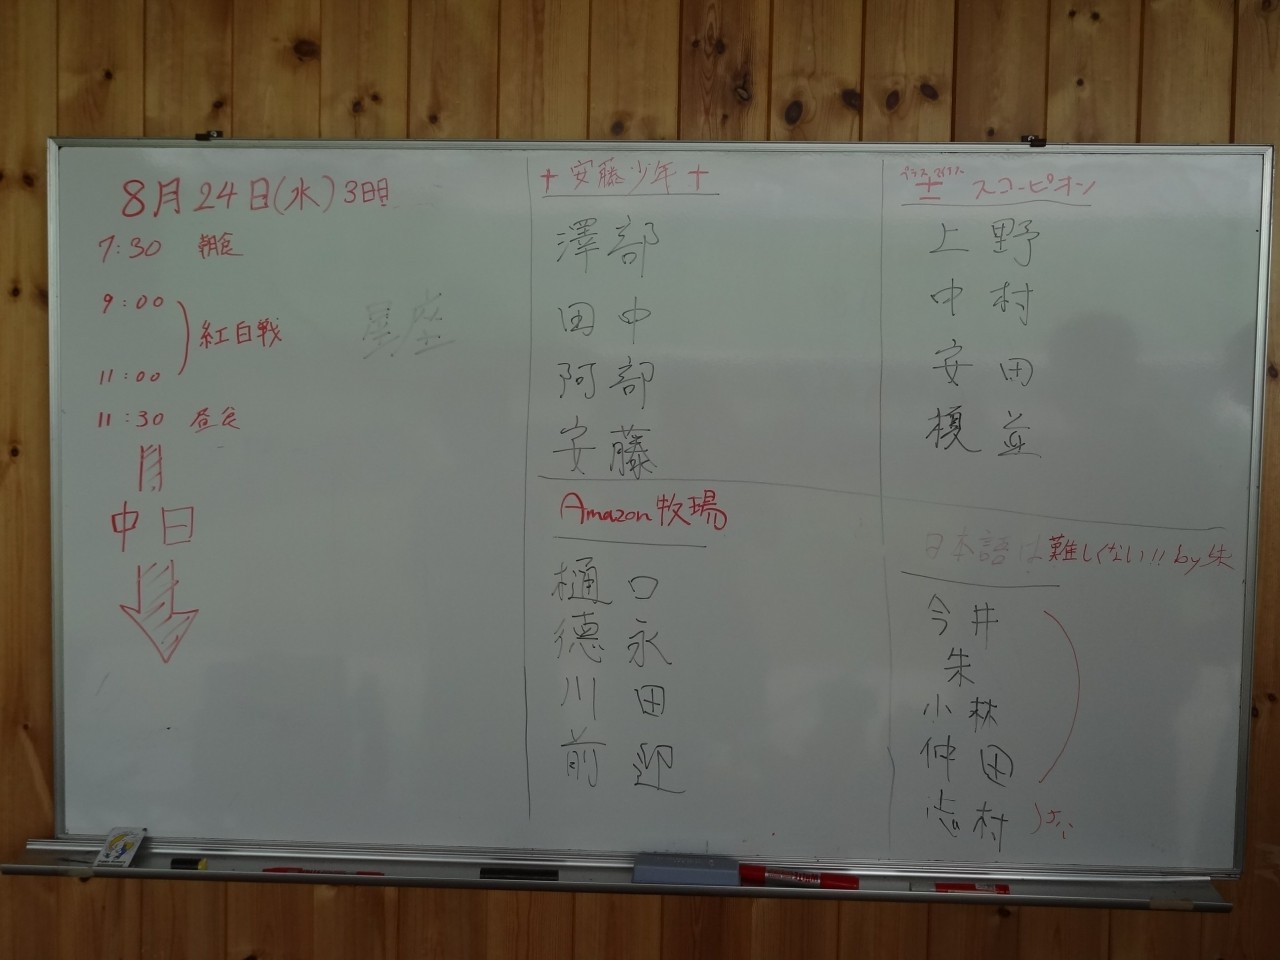 8月24日(水) 3日目
7:30 朝食
9:00
紅白戦
11:00
11:30 昼食
中日
星座
+ 安藤少年 +
澤部
田中
阿部
安藤
Amazon牧場
樋口
徳永
川田
前迎
プラスマイナス
± スコーピオン
上野
中村
安田
榎並
日本語は難しくない!! by 朱
今井
朱
小林
仲田
志村